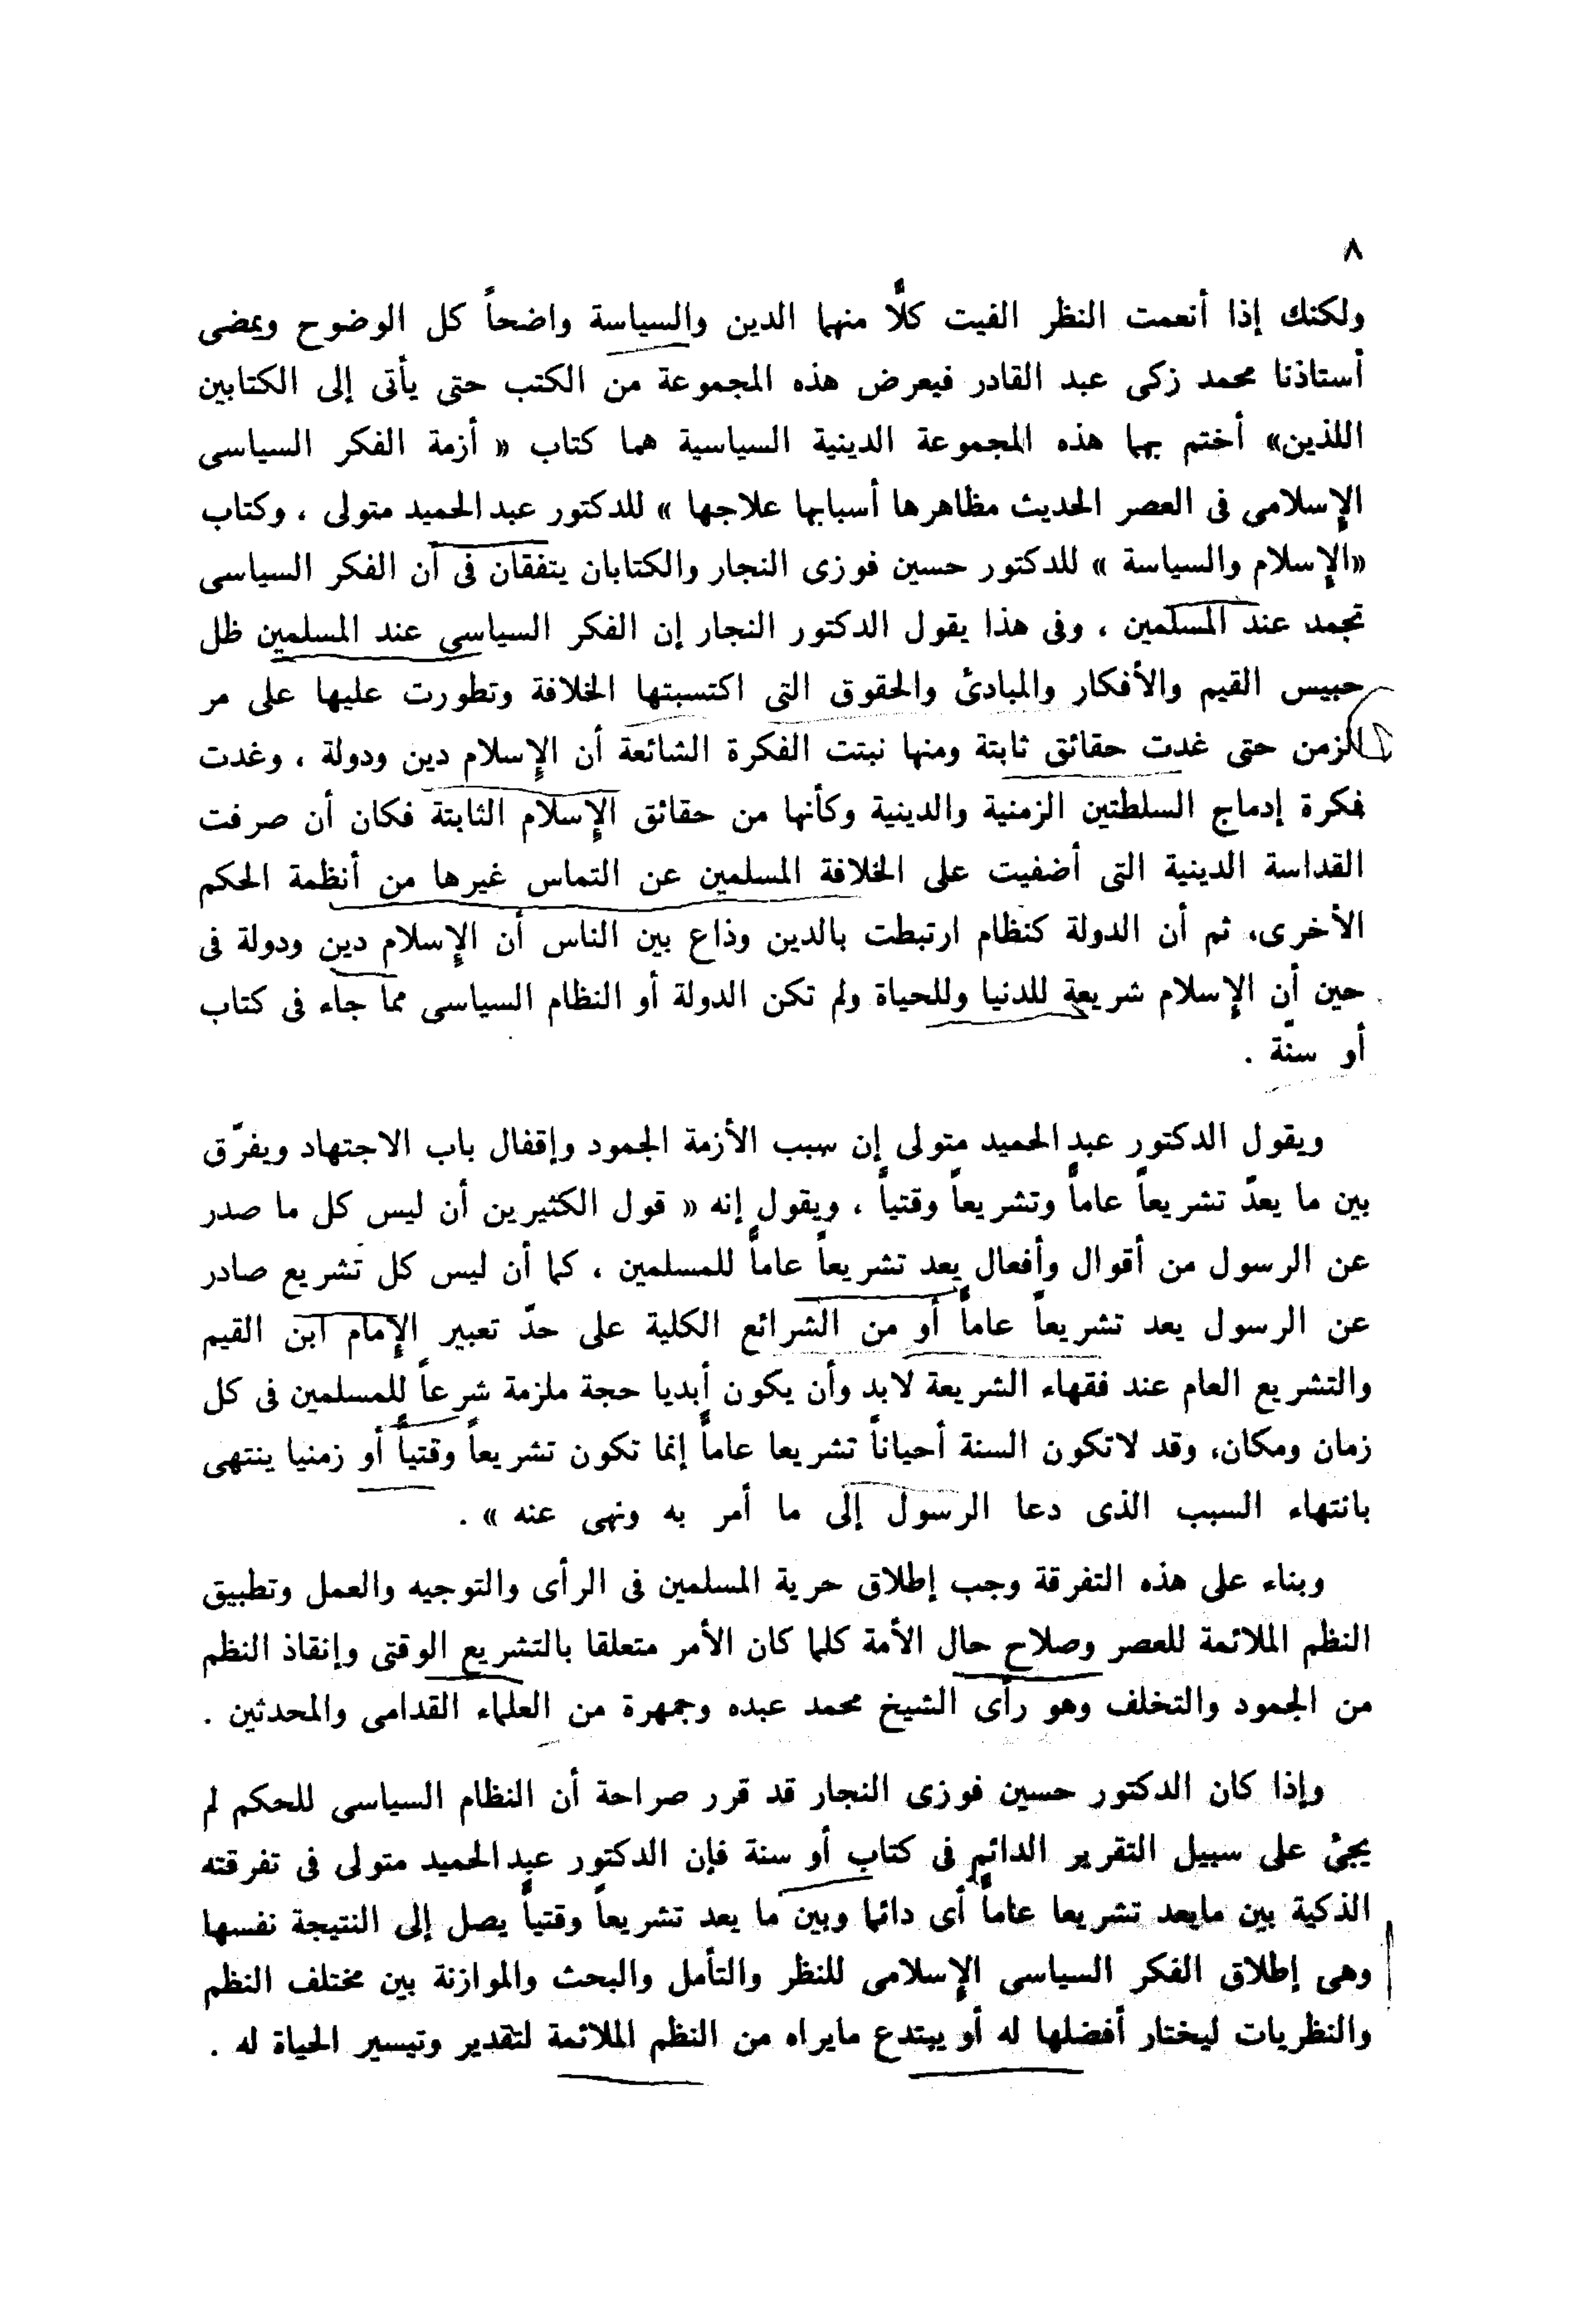 ٨
ولكنك إذا أنعمت النظر الفيت كلًّا منهما الدين والسياسة واضحاً كل الوضوح ويمضى
أستاذنا محمد زكى عبد القادر فيعرض هذه المجموعة من الكتب حتى يأتى إلى الكتابين
اللذين» أختم بهما هذه المجموعة الدينية السياسية هما كتاب « أزمة الفكر السياسى
الإسلامى فى العصر الحديث مظاهرها أسبابها علاجها » للدكتور عبد الحميد متولى ، وكتاب
«الإسلام والسياسة » للدكتور حسين فوزى النجار والكتابان يتفقان فى أن الفكر السياسى
تجمد عند المسلمين ، وفى هذا يقول الدكتور النجار إن الفكر السياسى عند المسلمين ظل
حبيس القيم والأفكار والمبادئ والحقوق التى اكتسبتها الخلافة وتطورت عليها على مر
الزمن حتى غدت حقائق ثابتة ومنها نبتت الفكرة الشائعة أن الإسلام دين ودولة ، وغدت
فكرة إدماج السلطتين الزمنية والدينية وكأنها من حقائق الإسلام الثابتة فكان أن صرفت
القداسة الدينية التى أضفيت على الخلافة المسلمين عن التماس غيرها من أنظمة الحكم
الأخرى، ثم أن الدولة كنظام ارتبطت بالدين وذاع بين الناس أن الإسلام دين ودولة فى
حين أن الإسلام شريعة للدنيا وللحياة ولم تكن الدولة أو النظام السياسى مما جاء فى كتاب
أو سنّة .
ويقول الدكتور عبد الحميد متولى إن سبب الأزمة الجمود وإقفال باب الاجتهاد ويفرّق
بين ما يعدّ تشريعاً عاماً وتشريعاً وقتياً ، ويقول إنه « قول الكثيرين أن ليس كل ما صدر
عن الرسول من أقوال وأفعال يعد تشريعاً عاماً للمسلمين ، كما أن ليس كل تشريع صادر
عن الرسول يعد تشريعاً عاماً أو من الشرائع الكلية على حدّ تعبير الإمام ابن القيم
والتشريع العام عند فقهاء الشريعة لابد وأن يكون أبديا حجة ملزمة شرعاً للمسلمين فى كل
زمان ومكان، وقد لاتكون السنة أحياناً تشريعا عاماً إنما تكون تشريعاً وقتياً أو زمنيا ينتهى
بانتهاء السبب الذى دعا الرسول إلى ما أمر به ونهى عنه » .
وبناء على هذه التفرقة وجب إطلاق حرية المسلمين فى الرأى والتوجيه والعمل وتطبيق
النظم الملائمة للعصر وصلاح حال الأمة كلما كان الأمر متعلقا بالتشريع الوقتى وإنقاذ النظم
من الجمود والتخلف وهو رأى الشيخ محمد عبده وجمهرة من العلماء القدامى والمحدثين .
وإذا كان الدكتور حسين فوزى النجار قد قرر صراحة أن النظام السياسى للحكم لم
يجئ على سبيل التقرير الدائم فى كتاب أو سنة فإن الدكتور عبد الحميد متولى فى تفرقته
الذكية بين مايعد تشريعا عاماً أى دائما وبين ما يعد تشريعاً وقتياً يصل إلى النتيجة نفسها
وهى إطلاق الفكر السياسى الإسلامى للنظر والتأمل والبحث والموازنة بين مختلف النظم
والنظريات ليختار أفضلها له أو يبتدع مايراه من النظم الملائمة لتقدير وتيسير الحياة له .